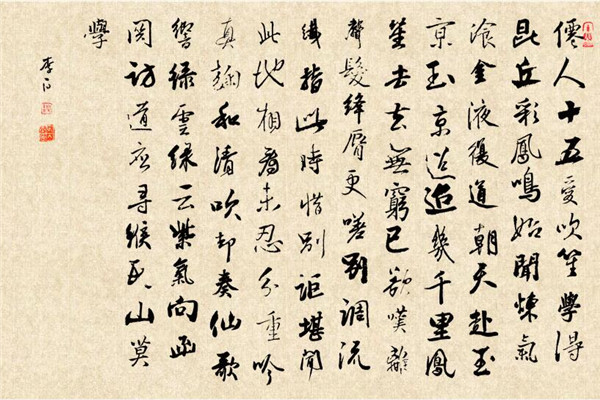 僊人十五愛吹笙學得
昆丘彩鳳鳴始聞煉氣
湌金液復道朝天赴玉
京玉京迢迢幾千里鳳
笙去去無窮已欲嘆離
聲髮絳脣更嗟別調流
纖指此時惜別詎堪聞
此地相看未忍分重吟
真麯和清吹却奏仙歌
響綠雲綠云紫氣向函
関訪道應尋緱氏山莫
學
李白